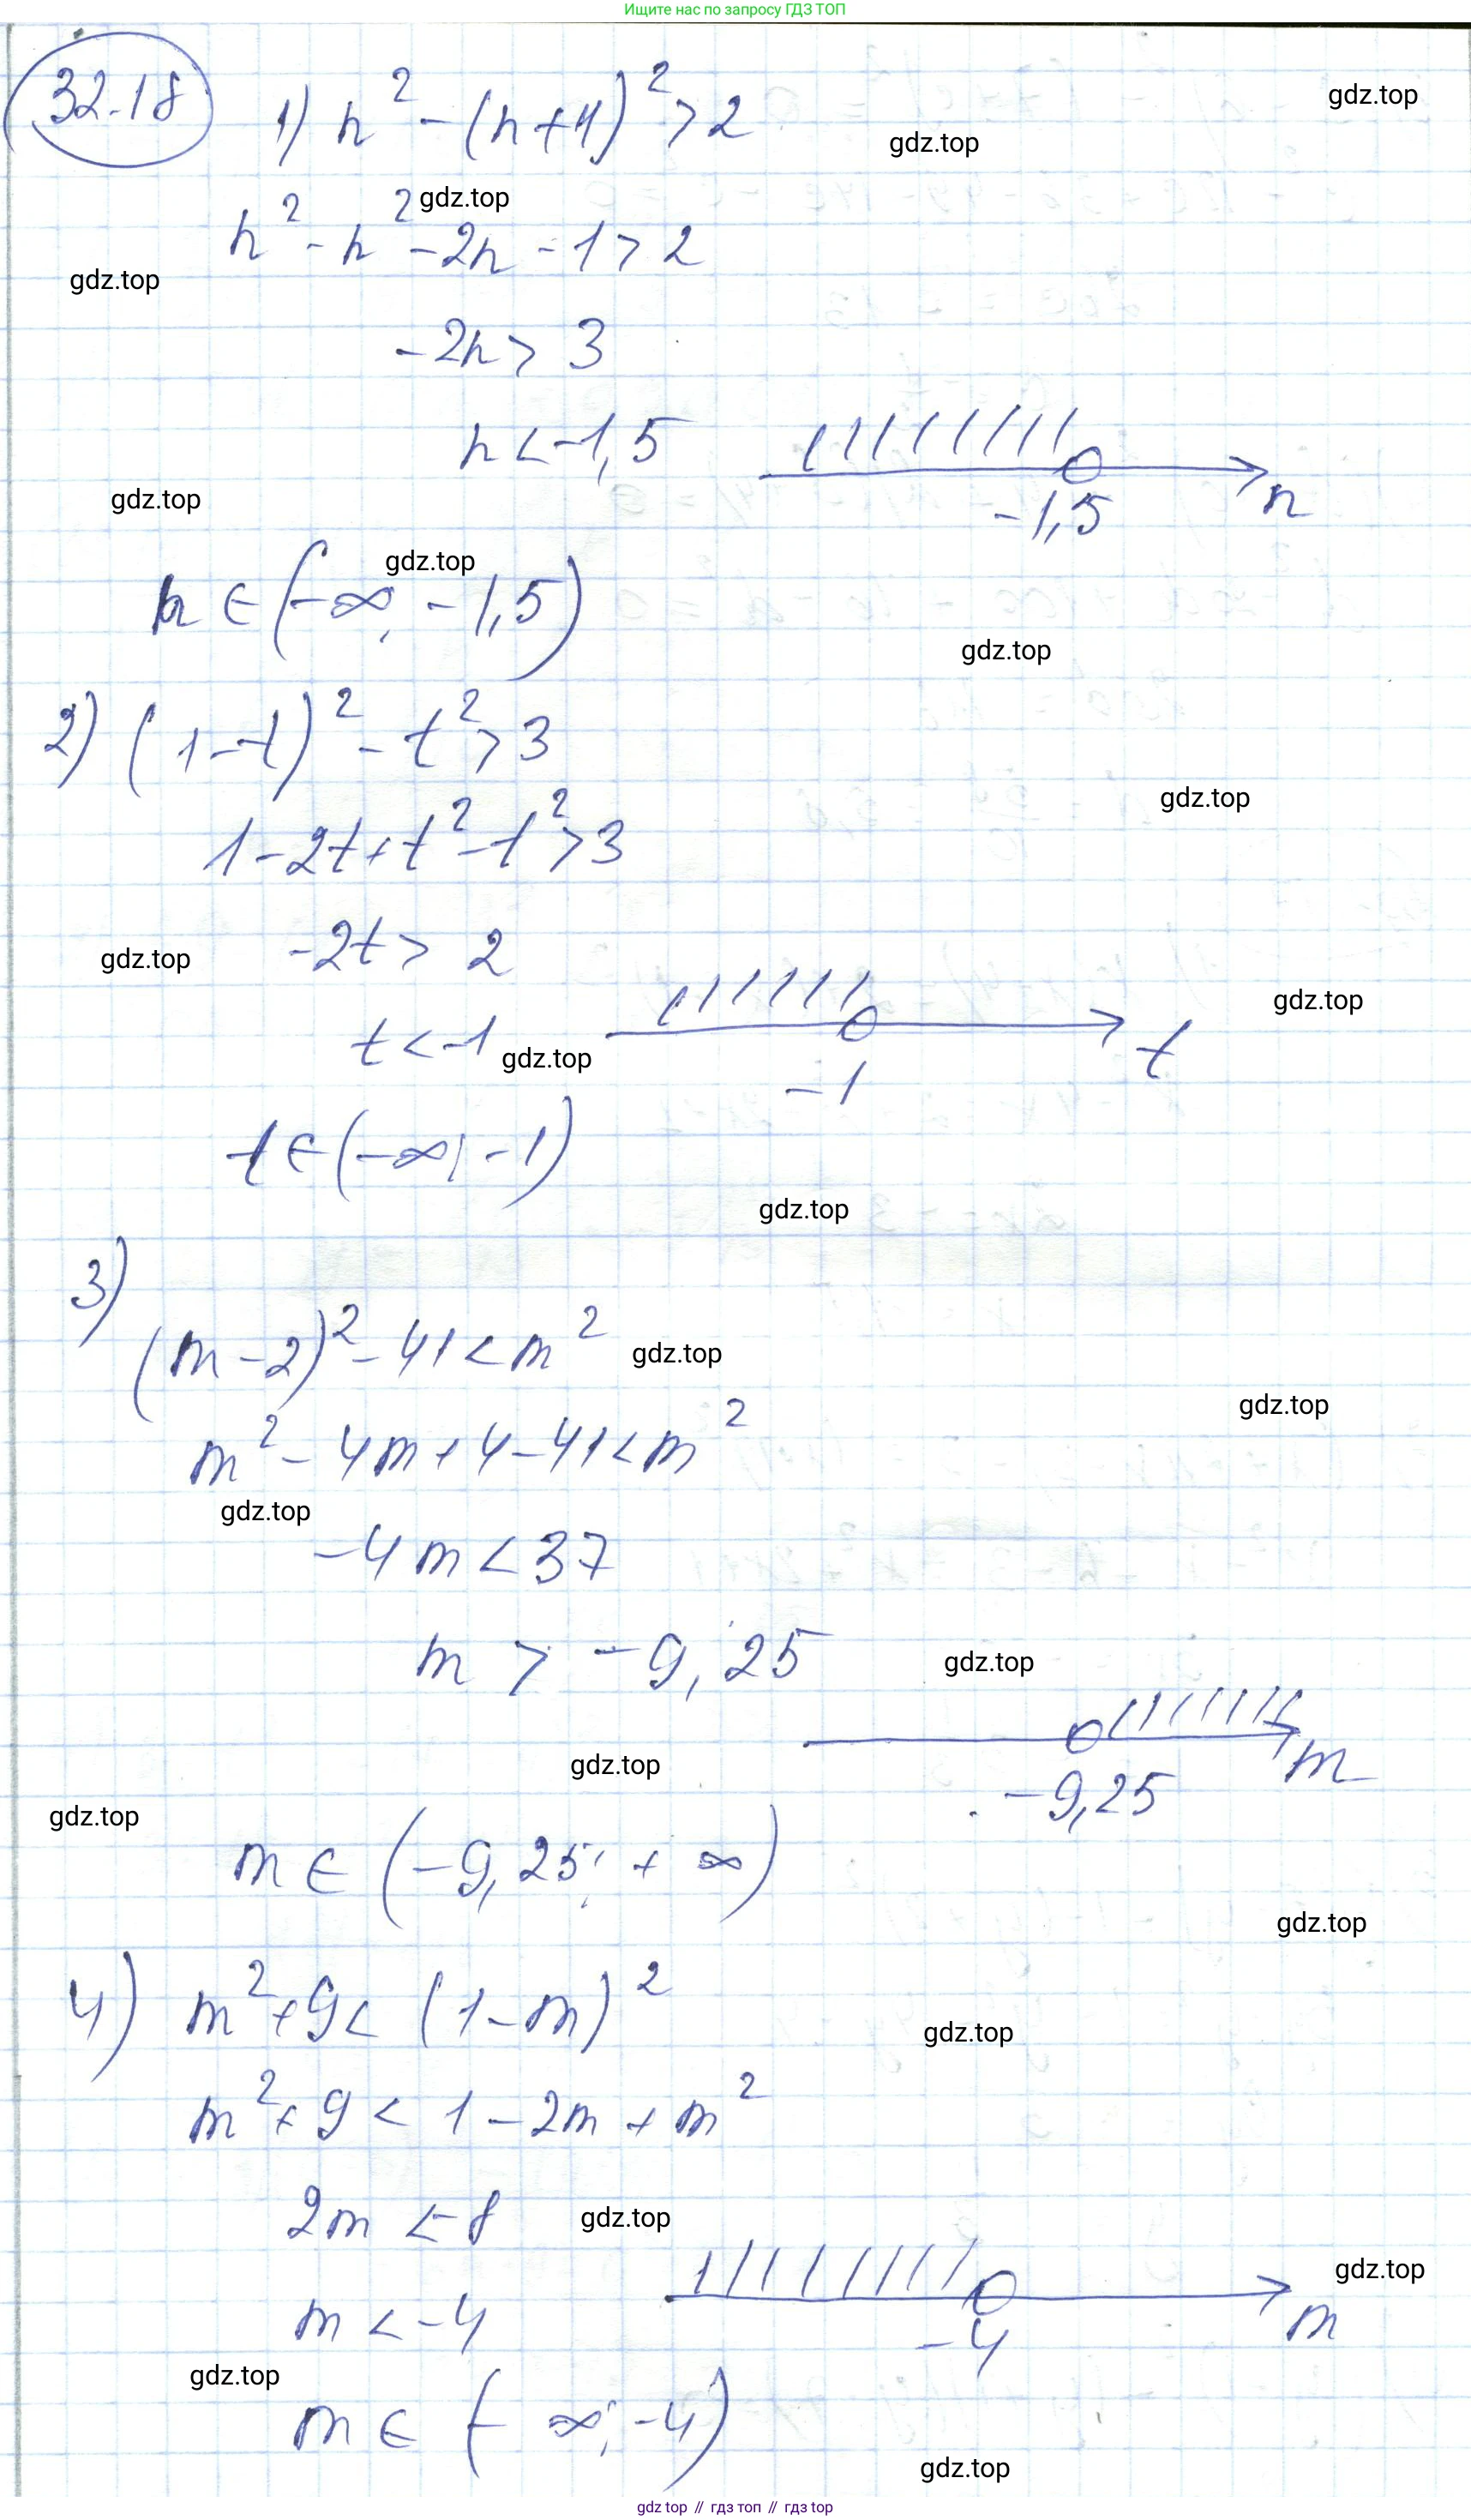 Ищите нас по запросу ГДЗ ТОП
32.18
1) n² - (n+1)² > 2
gdz.top
gdz.top
n² - n² - 2n - 1 > 2
gdz.top
gdz.top
-2n > 3
n < -1,5
n
-1,5
gdz.top
gdz.top
n ∈ (-∞; -1,5)
gdz.top
2) (1-t)² - t² > 3
gdz.top
1 - 2t + t² - t² > 3
-2t > 2
gdz.top
gdz.top
t < -1
gdz.top
t
-1
t ∈ (-∞; -1)
gdz.top
3)
(m-2)² - 41 < m²
gdz.top
gdz.top
m² - 4m + 4 - 41 < m²
gdz.top
-4m < 37
m > -9,25
gdz.top
m
-9,25
gdz.top
gdz.top
m ∈ (-9,25; +∞)
gdz.top
4) m² + 9 < (1-m)²
gdz.top
m² + 9 < 1 - 2m + m²
2m < -8
gdz.top
gdz.top
m < -4
m
-4
gdz.top
m ∈ (-∞; -4)
gdz.top
gdz top // гдз топ // гдз top